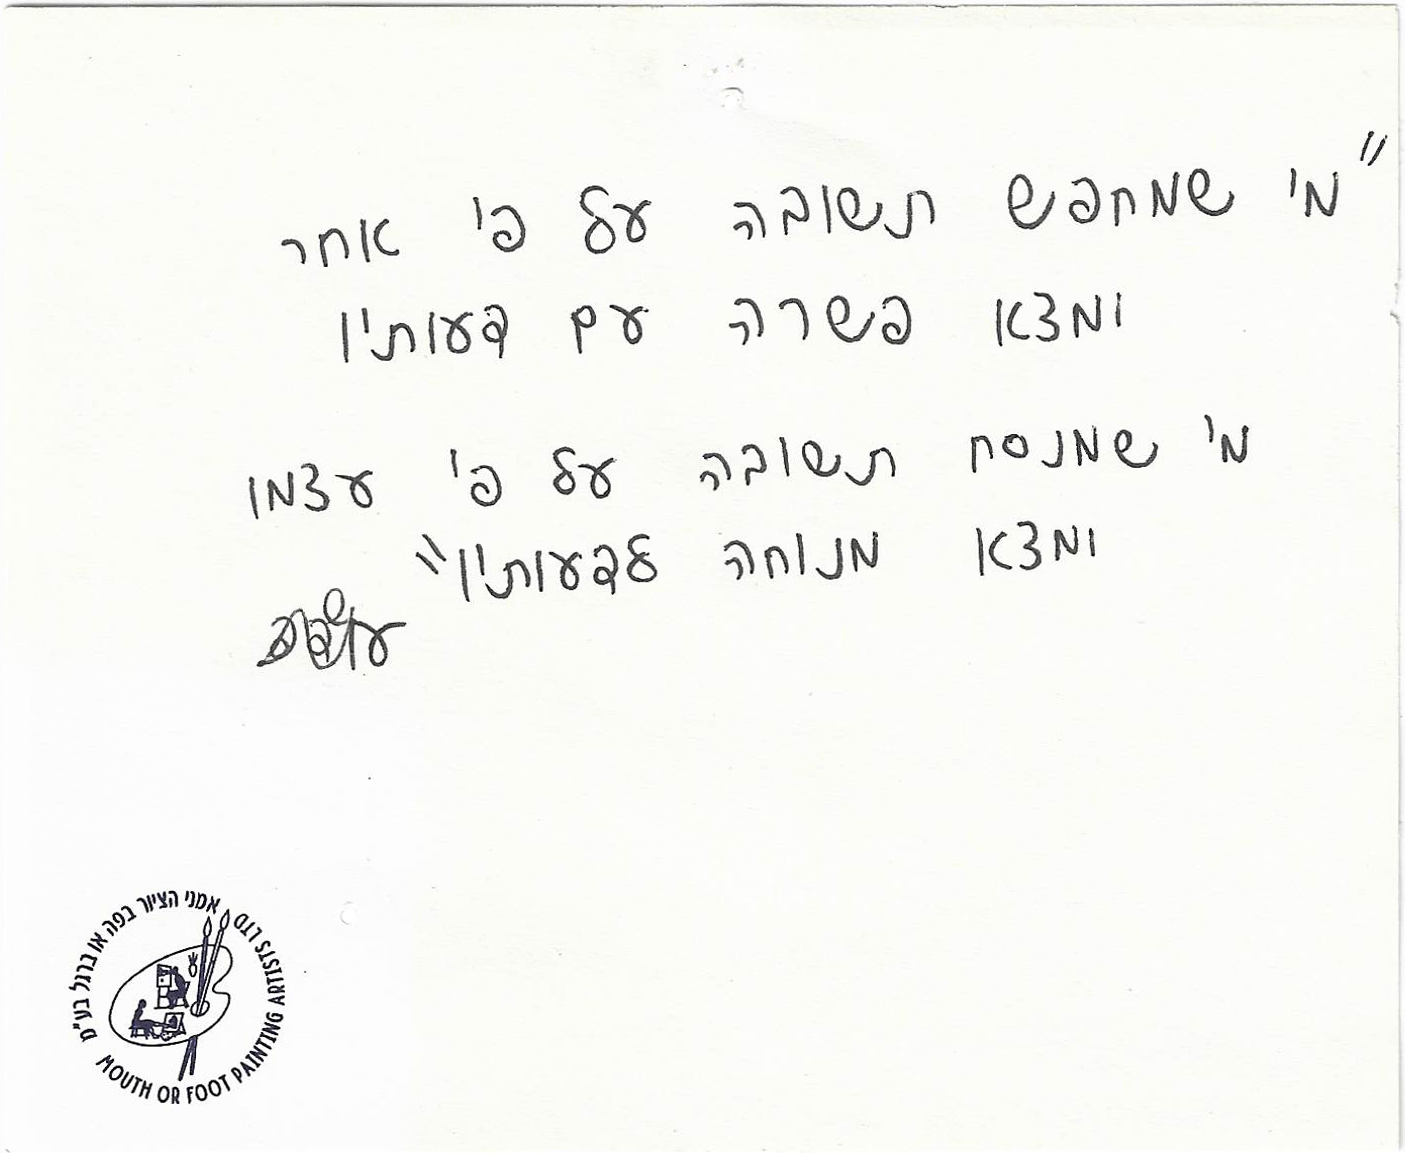 "מי שמחפש תשובה על פי אחר
ומצא פשרה עם דעותיו
מי שמנסח תשובה על פי עצמו
ומצא מנוחה לדעותיו"
אמני הציור בפה או ברגל בע"מ
MOUTH OR FOOT PAINTING ARTISTS LTD